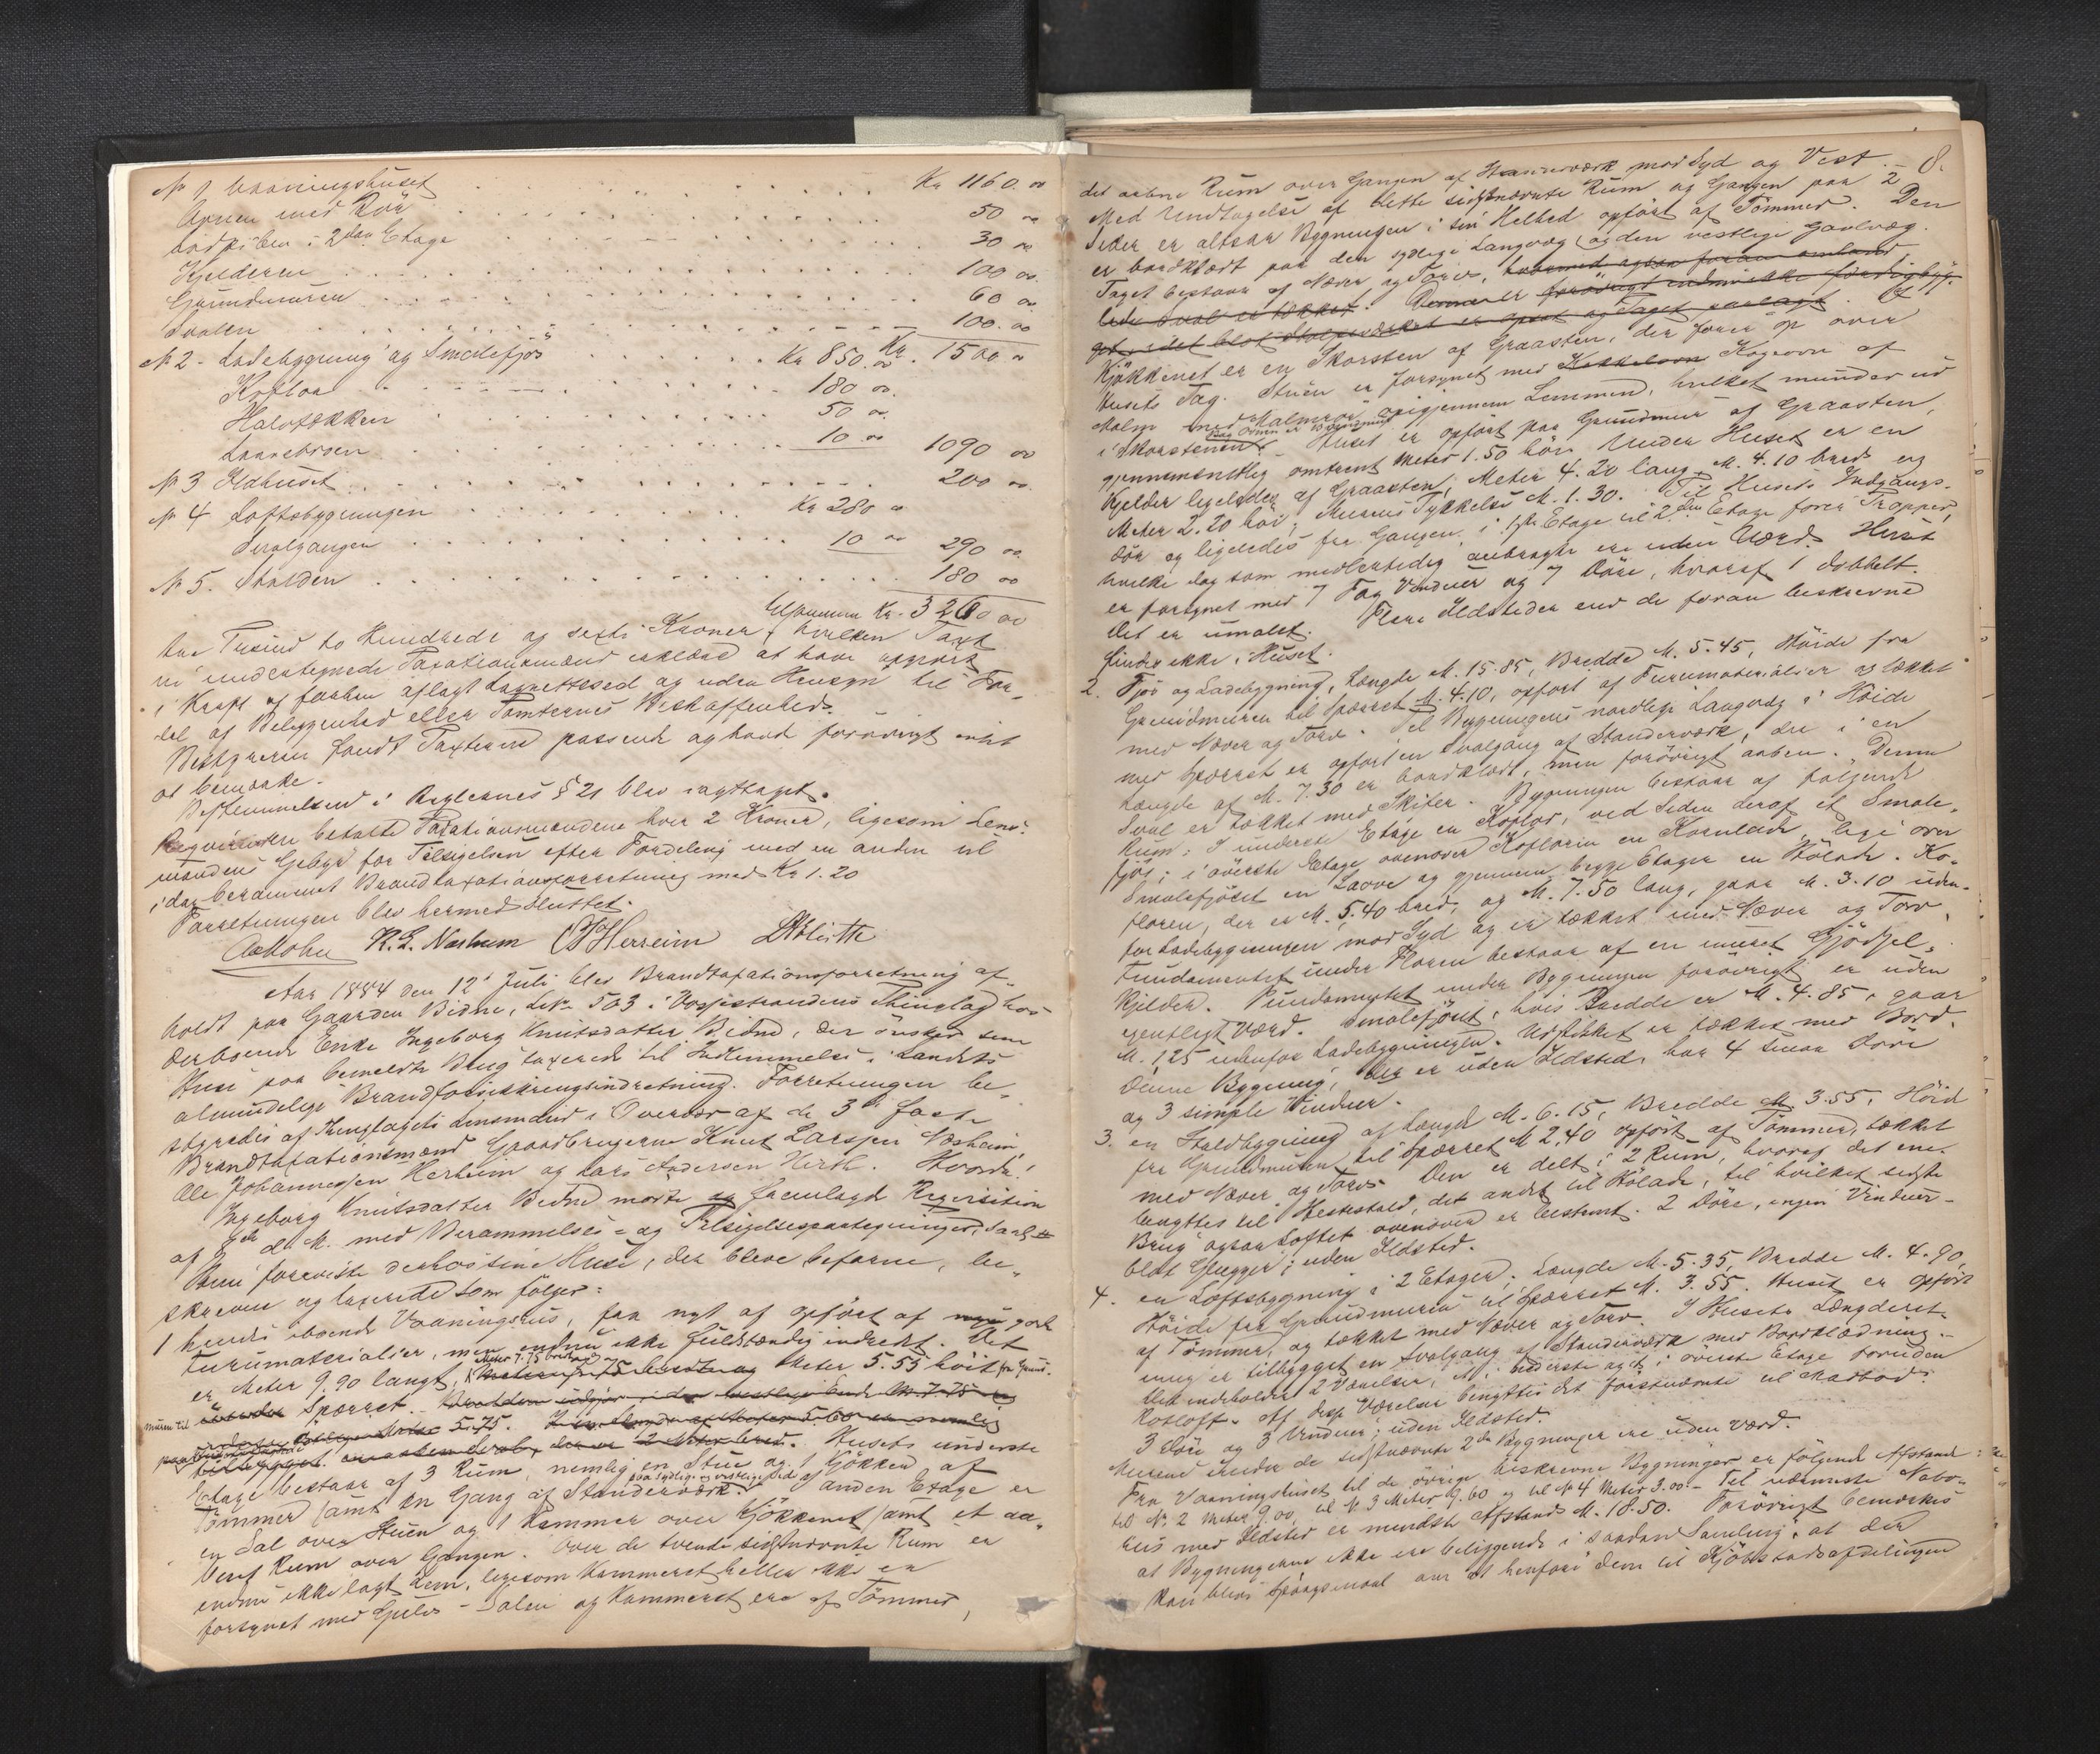 No 1 Vaaningshuset . . . Kr 1160. 00
Ovnen med Rør . . . 50 00
i 2den Etage . . . 30 00
Kjelderen . . . 100 00.
Grundmuren . . . 60 00
Svalen . . . 100. 00
Kr. 1500 00
No 2 - Ladebygning og Smalefjøs . . . Kr 850. 00
Kofloa . . . 180 00.
Halvtækken . . . 50 00.
Laavebroen . . . 10 00 1090 00
No 3 Ildhuset . . . 200 00.
No 4 Loftsbygningen . . . Kr 280 00
Svalgangen . . . 10 00 290 00.
No 5. Stalden . . . 180 00
tilsammen Kr. 3260 00
tre Tusind to Hundrede og sexti Kroner, hvilken Taxt
vi undertegnede Taxationsmænd erklære at have afgivet
i Kraft af forhen aflagt Lagrettesed og uden Hensyn til For-
del af Beliggenhed eller Tomternes Beskaffenhed.
Bestyreren fandt Taxterne passende og havde forøvrigt intet
at bemærke.
Bestemmelsen i Reglernes § 21 blev iagttaget.
Reqvirenten betalte Taxationsmændene hver 2 Kroner, ligesom Lens-
mandens Gebyr for Tilsigelsen efter Fordeling med en anden til
idag berammet Brandtaxationsforretning med Kr 1.20
Forretningen blev hermed sluttet.
R. L. Nasheim O J Herreim
Aar 1884 den 12te Juli blev Brandtaxationsforretning af-
holdt paa Gaarden Bidne, L.No 503 i Vossestrandens Thinglag hos
derboende Enke Ingeborg Knutsdatter Bidne, der ønsker sine
Huse paa bemeldte Brug taxerede til Indlemmelse i Landets
almindelige Brandforsikringsindretning. Forretningen be-
styredes af Thinglagets Lensmand i Overvær af de 3de faste
Brandtaxationsmænd Gaardbrugerne Knut Larssen Næsheim,
Ole Johannessen Herheim og Lars Andersen Hirth.
Ingeborg Knutsdatter Bidne mødte og fremlagde Reqvisition
af d. M. med Berammelses- og Tilsigelsespaategninger, samt
foreviste derhos sine Huse, der bleve befarne, be-
skrevne og taxerede som følger:
1 hendes iboende Vaaningshus, fra nyt af opført af gode
Furumaterialier, men endnu ikke fuldstændig indredt. Det
Meter 7.75 bredt og
er Meter 9.90 langt, Meter 5.55 høit fra Grund-
muren til Sparret.
5.75.
Husets underste
Etage bestaar af 3 Rum, nemlig en Stue og 1 Kjøkken af
Tømmer samt en Gang af Standerværk. I anden Etage er
en Sal over Stuen og 1 Kammer over Kjøkkenet samt et aa-
bent Rum over Gangen. Over de tvende sidstnævnte Rum er
endnu ikke lagt Lem, ligesom Kammeret heller ikke er
forsynet med Gulv - Salen og Kammeret ere af Tømmer,
8.
det aabne Rum over Gangen af Standerværk mod Syd og Vest. -
Med Undtagelse af dette sidstnævnte Rum og Gangen paa 2
Sider er altsaa Bygningen i sin Helhed opført af Tømmer. Den
er bordklædt paa den sydlige Langvæg og den vestlige Gavlvæg.
Taget bestaar af Næver og Torv,
I
Kjøkkenet er en Skorsten af Graasten, der fører op over
Husets Tag. Stuen er forsynet med Kogeovn af
Malm med Malmrør opigjennem Lemmen, hvilket munder ud
i Skorstenen. Huset er opført paa Grundmur af Graasten,
gjennemsnitlig omtrent Meter 1.50 høi. Under Huset er en
Kjelder ligeledes af Graasten, Meter 4.20 lang, M. 4.10 bred og
Meter 2.20 høi; Murens Tykkelse M. 1.30. Til Husets Indgangs-
dør og ligeledes fra Gangen i 1ste Etage til 2den Etage fører Trapper,
hvilke dog som midlertidig anbragte ere uden Værd. Huset
er forsynet med 7 Fag Vinduer og 7 Døre, hvoraf 1 dobbelt.
Det er umalet. Flere Ildsteder end de foran beskrevne
findes ikke i Huset.
2. Fjøs og Ladebygning, Længde M. 15.85, Bredde M. 5.45, Høide fra
Grundmuren til Sparret M. 4.10, opført af Furumaterialier og tækket
med Næver og Torv. Til Bygningens nordlige Langvæg i Høide
med Sparret er opført en Svalgang af Standerværk, der i en
Længde af M. 7.30 er bordklædt, men forøvrigt aaben. Denne
Sval er tækket med Skifer. Bygningen bestaar af følgende
Rum: I underste Etage en Koflor, ved Siden deraf et Smale-
fjøs; i øverste Etage ovenover Kofloren en Kornlade, lige over
Smalefjøset en Laave og gjennem begge Etager en Høladе. Ko-
floren, der er M. 5.40 bred, og M. 7.50 lang, gaar M. 3.10 uden-
for Ladebygningen mod Syd og er tækket med Næver og Torv.
Fundamentet under Floren bestaar af en muret Gjødsel-
kjelder. Fundamentet under Bygningen forøvrigt er uden
egentligt Værd. Smalefjøset, hvis Bredde er M. 4.85, gaar
M. 1,25 udenfor Ladebygningen. Udstikket er tækket med Bord.
Denne Bygning, der er uden Ildsted, har 4 smaa Døre
og 3 simple Vinduer.
3. en Staldbygning af Længde M. 6.15, Bredde M. 3.55, Høide
fra Grundmuren til Sparret M 2.40 opført af Tømmer, tækket
med Næver og Torv. Den er delt i 2 Rum, hvoraf det ene
benyttes til Hestestald, det andet til Hølade, til hvilket sidste
Brug ogsaa Loftet ovenover er bestemt. 2 Døre, ingen Vinduer -
blot Glugger; uden Ildsted.
4. en Loftsbygning i 2 Etager; Længde M. 5.35, Bredde M. 4.90,
Høide fra Grundmuren til Sparret M. 3.55. Huset er opført
af Tømmer, og tækket med Næver og Torv. I Husets Længderet-
ning er tilbygget en Svalgang af Standerværk med Bordklædning. -
Det indeholder 2 Værelser, et i nederste og et i øverste Etage foruden
Rosloft. Af disse Værelser benyttes det førstnævnte til Madbod.
3 Døre og 3 Vinduer; uden Ildsted.
Murene under de sidstnævnte 2de Bygninger ere uden Værd.
Fra Vaaningshuset til de øvrige beskrevne Bygninger er følgende Afstande:
til No 2 Meter 9.00, til No 3 Meter 9.60 og til No 4 Meter 3.00. - Til nærmeste Nabo-
hus med Ildsted er mindste Afstand M. 18.50. Forøvrigt bemærkes
at Bygningerne ikke ere beliggende i saadan Samling, at der
kan blive Spørgsmaal om at henføre dem til Kjøbstadsafdelingen